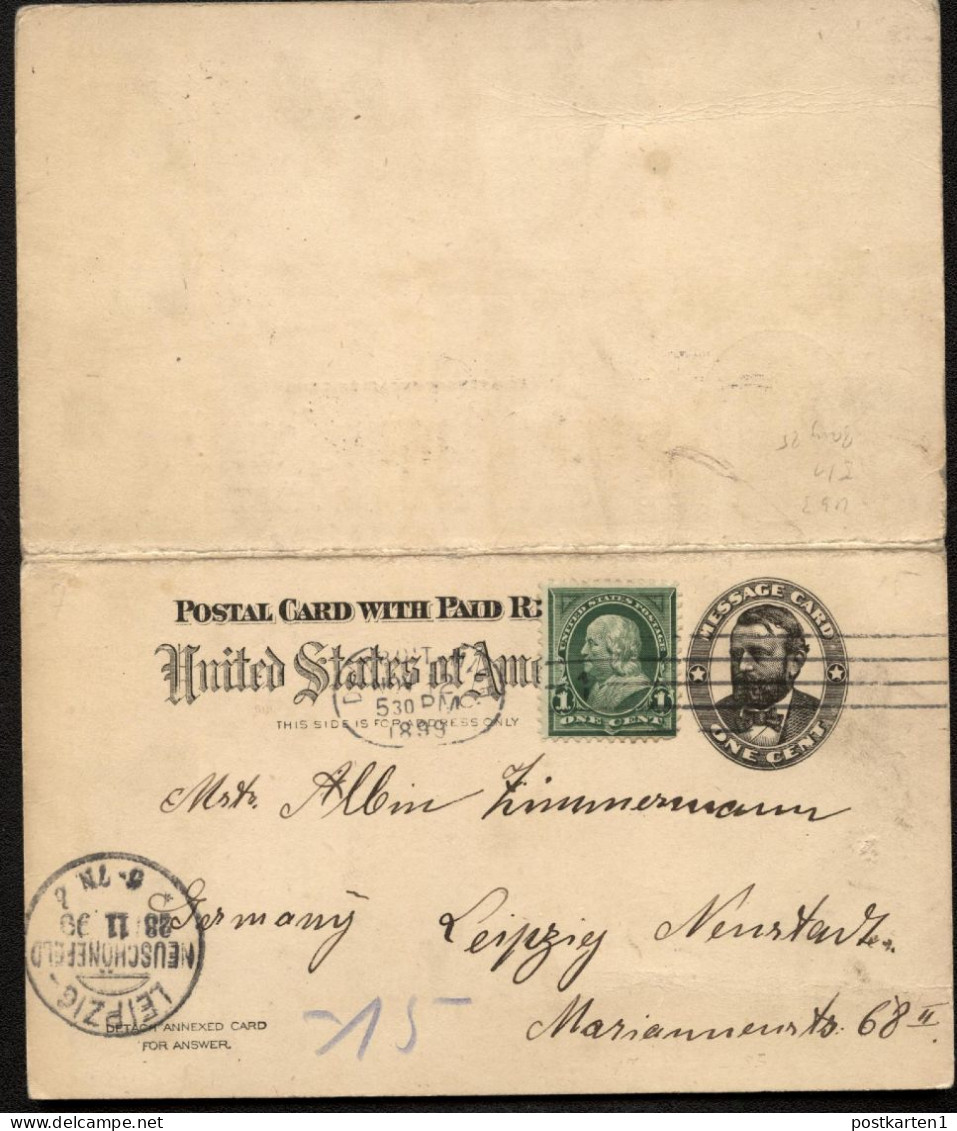 POSTAL CARD WITH PAID RE
United States of Ame
THIS SIDE IS FOR ADDRESS ONLY
UNITED STATES POSTAGE
1 1
ONE CENT
MESSAGE CARD
ONE CENT
5 30 PM
1899
Mrtr. Albin Zimmermann
Germany Leipzig Neustadt.
Mariannenstr. 68 II.
LEIPZIG-
NEUSCHÖNEFELD
28 11 99
6-7N.
DETACH ANNEXED CARD
FOR ANSWER.
-15-
postkarten1